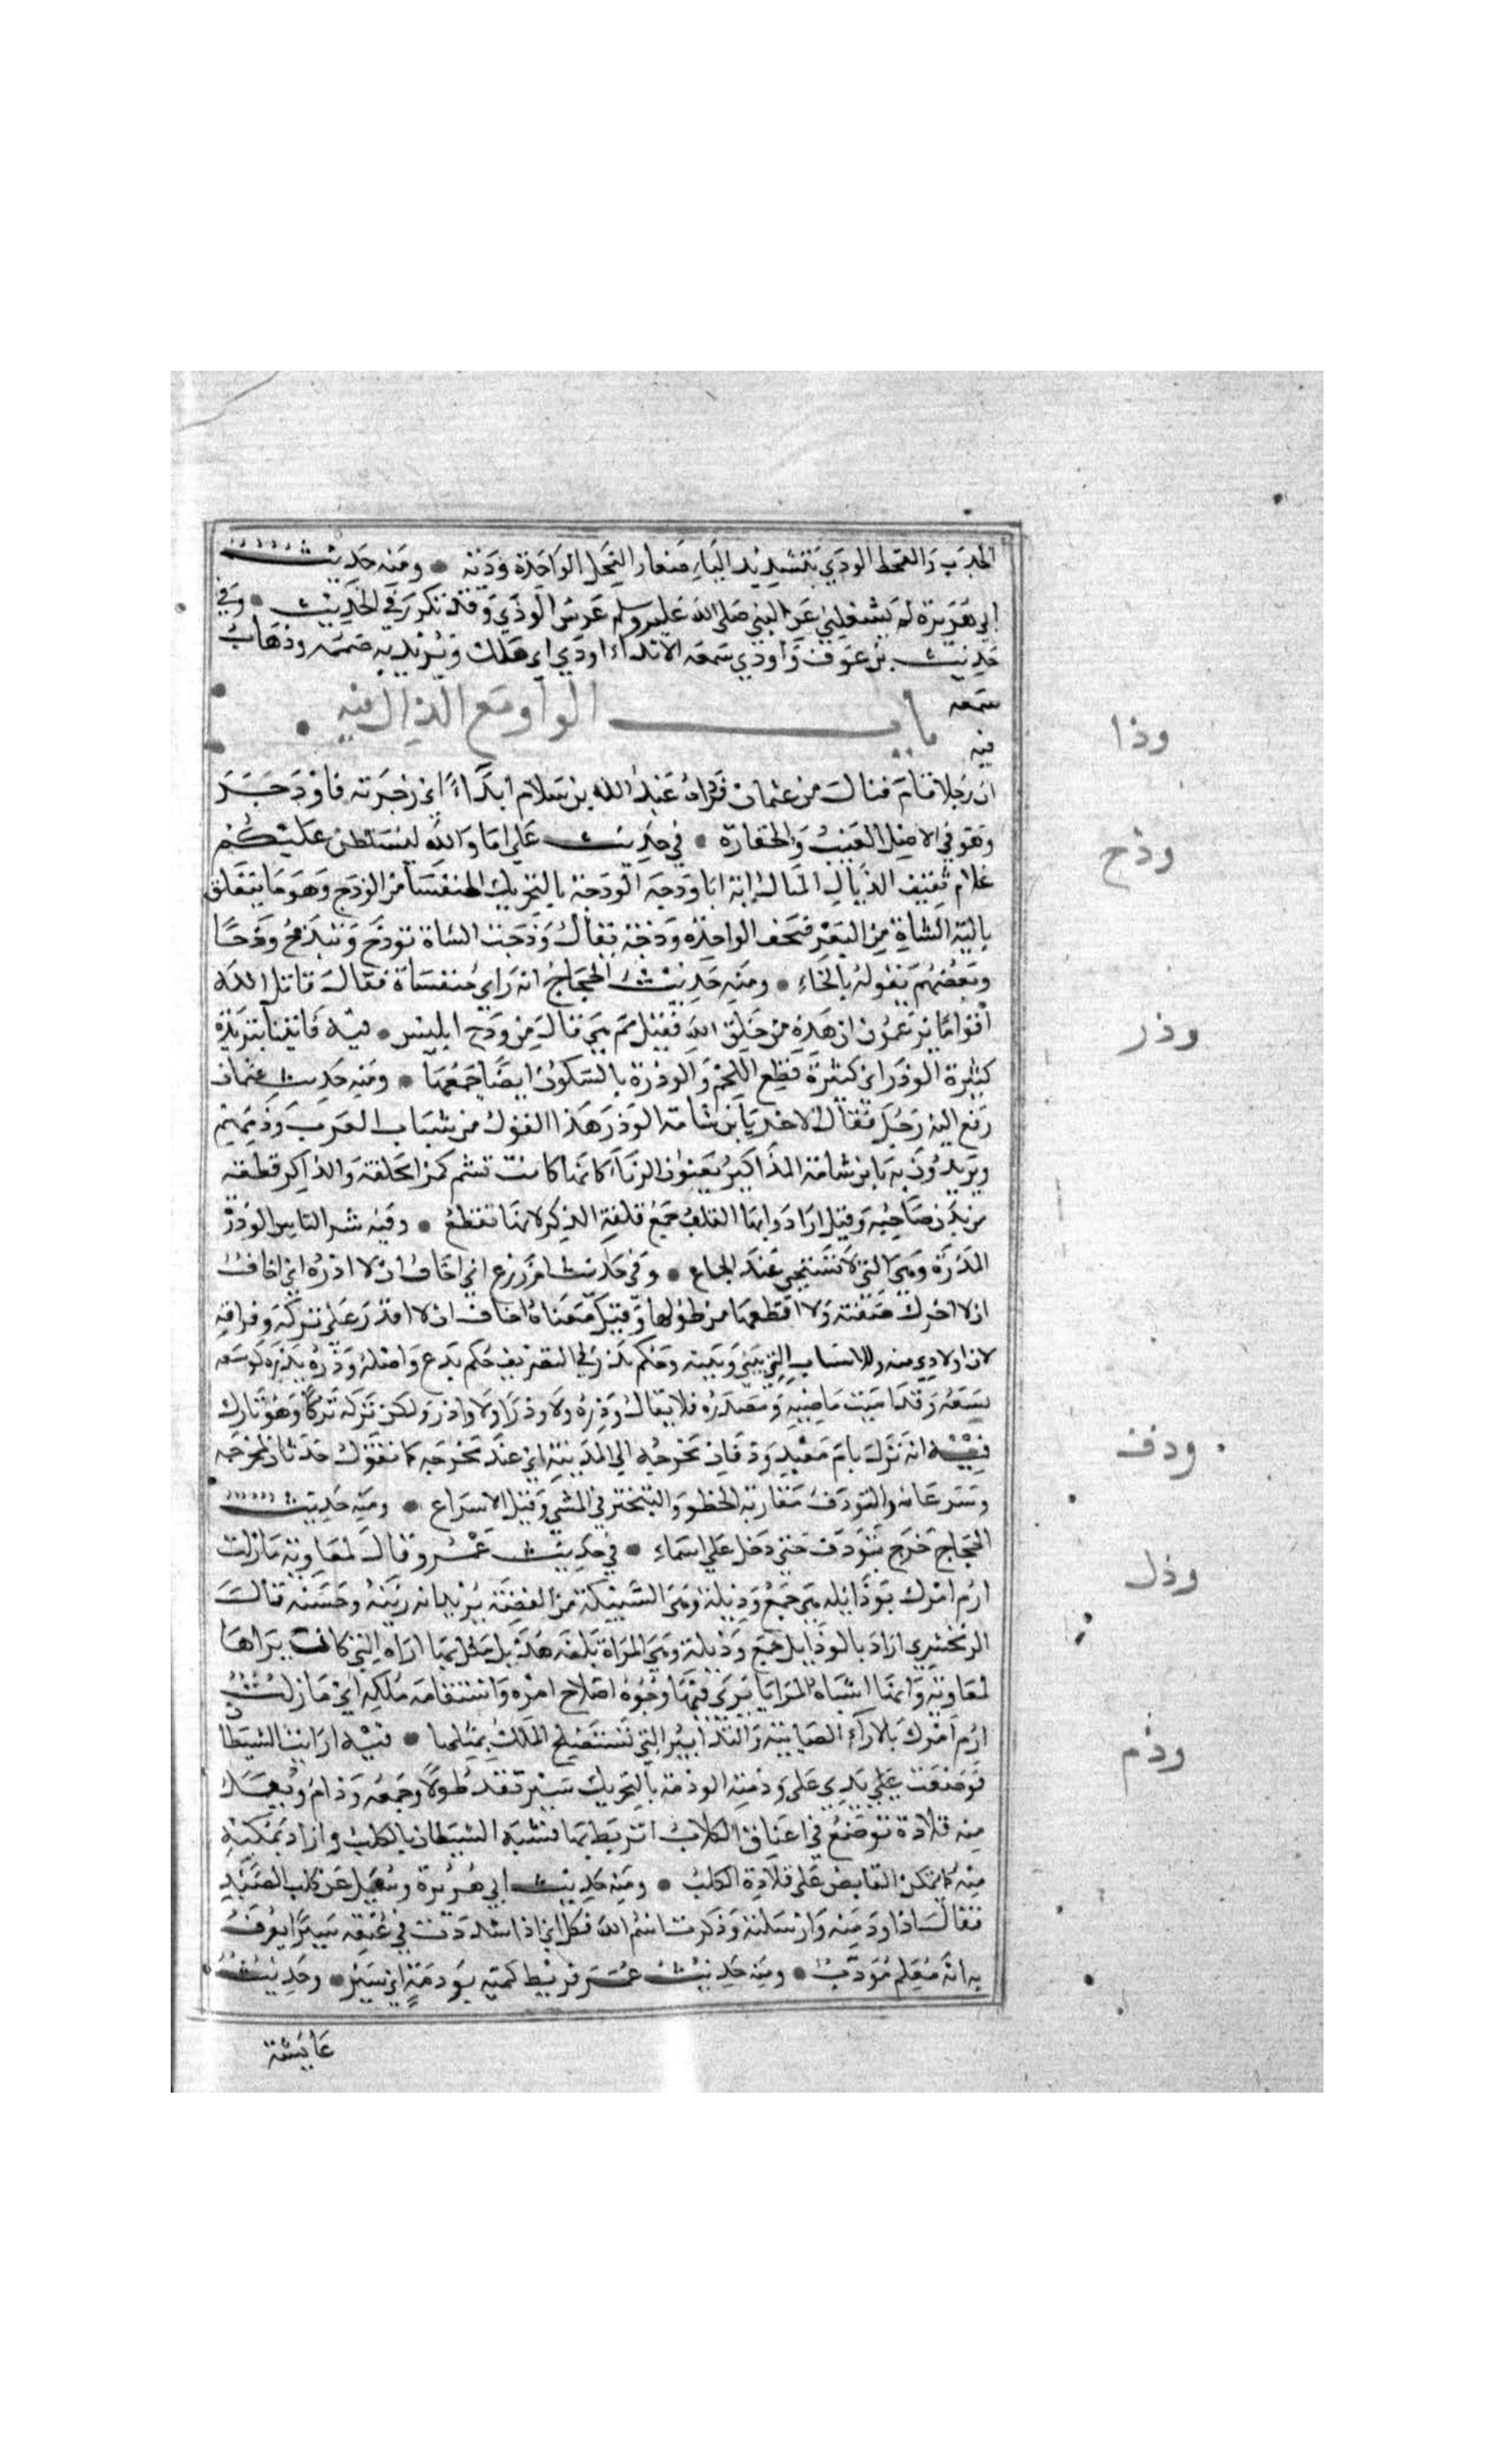 الجدب والقحط الودي بتشديد الياء صغار النخل الواحدة ودية • ومنه حديث
ابي هريرة لم يشغلني عن النبي صلى الله عليه وسلم غرس الودي وقد تكرر في الحديث • وفي
حديث بن عوف واودي سمعه الا ندااودي اي هلك ويريد به صممه وذهاب
سمعه
باب الواو مع الذال فيه •
فيه
وذا
ان رجلا قام فنال من عثمان فوذاه عبد الله بن سلام ابذاء اي زجرته فاوذجر
وهو في الاصل العيب والحقارة • في حديث علي اما والله ليسلطن عليكم
وذح
غلام ثقيف الذيال الميال ايه ابا وذحه الوذحة بالتحريك الخنفسا من الوذح وهو ما يتعلق
بالية الشاة من البعر فيجف الواحدة وذحة يقال وذحت الشاة توذح وتيذح وذحا
وبعضهم يقوله بالخاء • ومنه حديث الحجاج انه راي خنفساة فقال قاتل الله
اقواما يزعمون ان هذه من خلق الله فقيل مم هي قال من وذح ابليس • فيه فاتينا بثريدة
وذر
كثيرة الوذر اي كثيرة قطع اللحم والوذرة بالسكون ايضا جمعها • ومنه حديث عثمان
رفع اليه رجل فقال لاخر يابن شامة الوذر هذا القول من سباب العرب وذمهم
ويريدون به يابن شامة المذاكير يعنون الزنا كانها كانت تشم كمرا مختلفة والذكر قطعة
من بدن صاحبه وقيل ارادوا بها القلف جمع قلفة الذكر لانها تقطع • وفيه شر النساء الوذرة
المذرة وهي التي لا تستحي عند الجماع • وفي حديث ام زرع اني اخاف ان لا اذره اي اخاف
ان لا اترك صفته ولا اقطعها من طولها وقيل معناه اخاف ان لا اقدر على تركه وفراقه
لان اولادي منه وللاسباب التي بيني وبينه وحكم يذر في التصريف حكم يدع واصله وذره يذره كوسعه
يسعه وقد اميت ماضيه ومصدره فلا يقال وذره ولا وذرا ولا واذر ولكن تركه تركا وهو تارك
فيه انه نزل بام معبد وذفان مخرجه الي المدينة اي عند مخرجه كما تقول حدثان مخرجه
وذف
وسرعانه والتوذف مقاربة الخطو والتبختر في المشي وقيل الاسراع • ومنه حديث
الحجاج خرج يتوذف حتى دخل علي اسماء • في حديث عمرو قال لمعاوية مازلت
وذل
ارم امرك بوذايله هي جمع وذيلة وهي السبيكة من الفضة يريد انه زينه وحسنه قال
الزمخشري اراد بالوذايل جمع وذيلة وهي المراة بلغة هذيل مثل بها اراه التي كان يراها
لمعاوية وانها اشباه المرايا يري فيها وجوه اصلاح امره واستقامه ملكه اي مازلت
ارم امرك بالاراء الصايبة والتدابير التي تستصلح الملك بمثلها • فيه اريت الشيطا
وذم
فوضعت يدي علي وذمته الوذمة بالتحريك سير تقد طولا وجمعه وذام ويعمل
منه قلادة توضع في اعناق الكلاب لتربط بها فشبه الشيطان بالكلب واراد تمكنه
منه كما يتمكن القابض علي قلادة الكلب • ومنه حديث ابي هريرة وسيل عن كلب الصيد
فقال اذا وذمته وارسلته وذكرت اسم الله فكل اي اذا شددت في عنقه سيرا يعرف
به انه معلم مودب • ومنه حديث عمر فربط كميه بوذمة اي سير • وحديث
عايشة